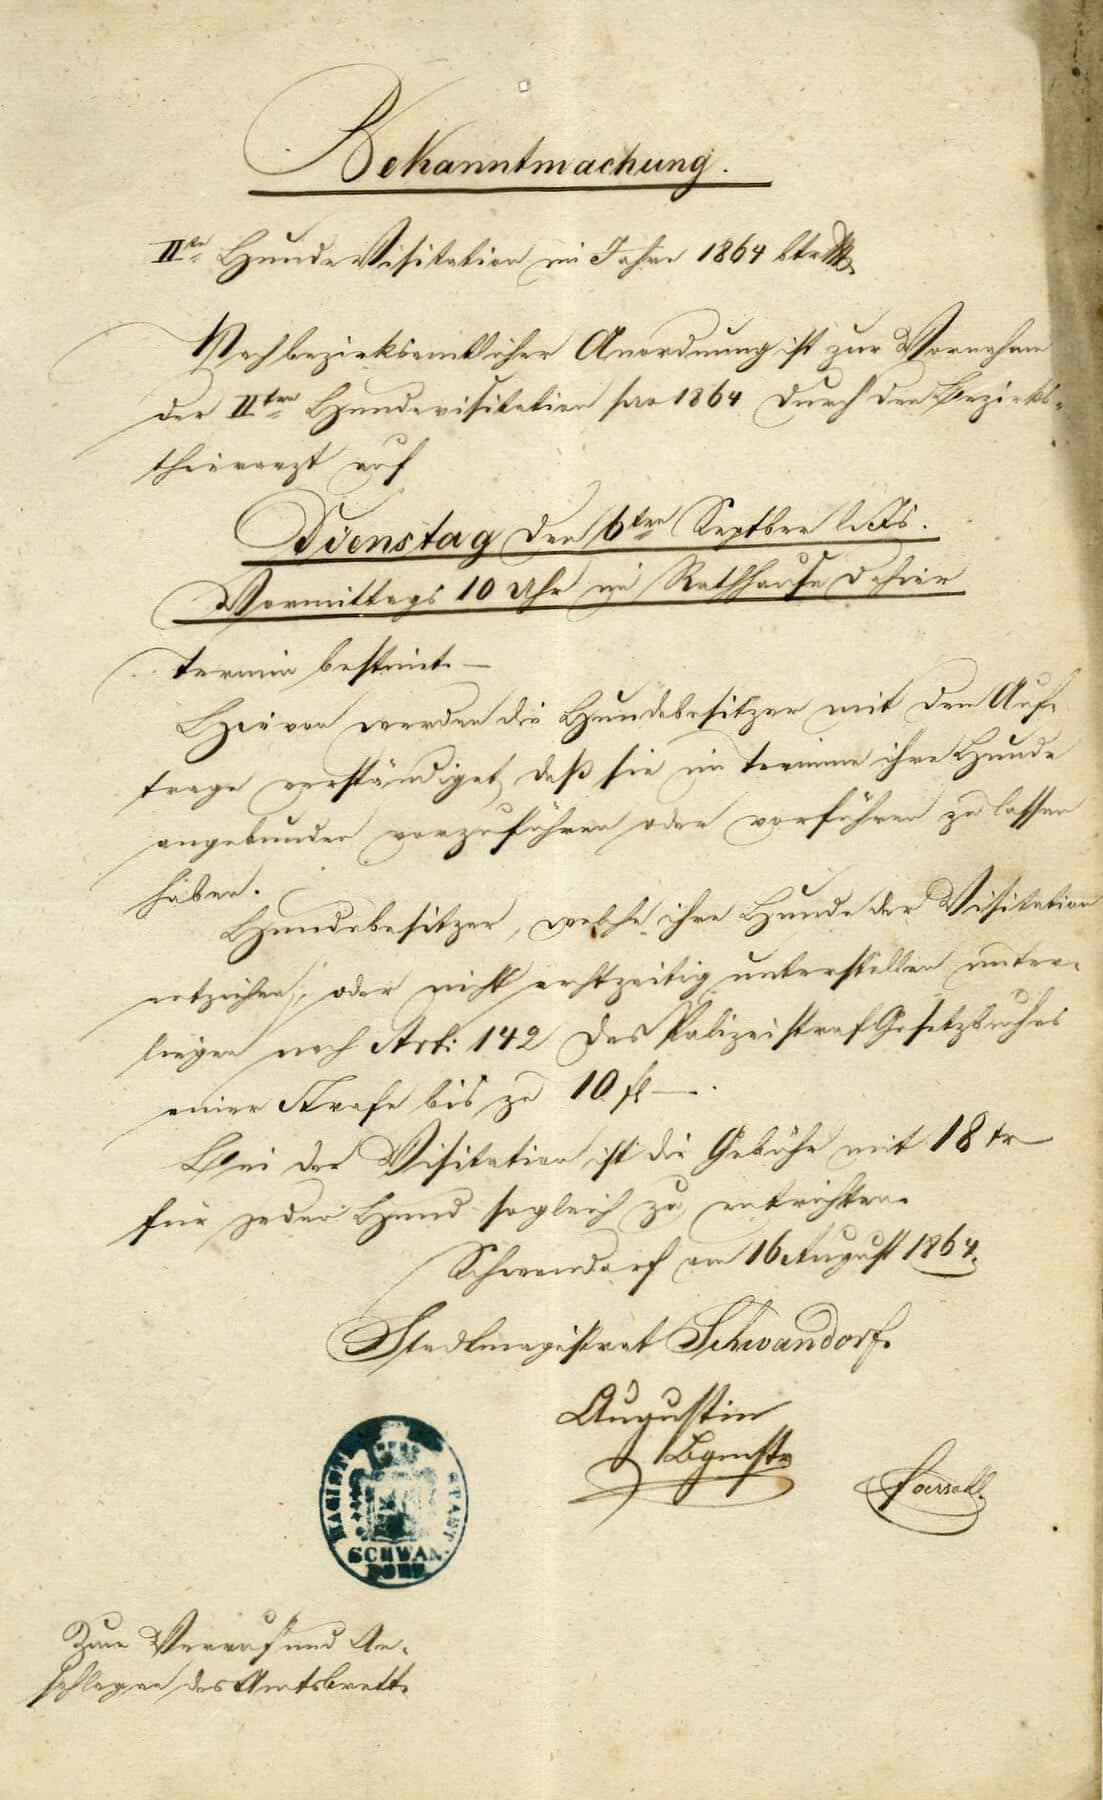 Bekanntmachung.
IIte Hunde Visitation im Jahre 1864 btr.
Nach bezirksamtlicher Anordnung ist zur Vornahme
der IIten Hundevisitation pro 1864 durch den Bezirks-
thierarzt auf
Dienstag den 6ten Septber l. Js.
Vormittags 10 Uhr im Rathhause dahier
Termin bestimt.
Hievon werden die Hundebesitzer mit dem Auf-
trage verständiget, daß sie im Termine ihre Hunde
angebunden vorzuführen oder vorführen zu lassen
haben.
Hundebesitzer, welche ihre Hunde der Visitation
entziehen, oder nicht rechtzeitig unterstellen unter-
liegen nach Art: 142 des Polizeistraf Gesetzbuches
einer Strafe bis zu 10 fl.
Bei der Visitation ist die Gebühr mit 18 kr
für jeden Hund sogleich zu entrichten.
Schwandorf am 16 August 1864.
Stadtmagistrat Schwandorf.
Augustin
Bgmstr
MAGIST. STADT
SCHWAN
DORF
Zum Verruf und An-
schlagen des Amtsbrett.